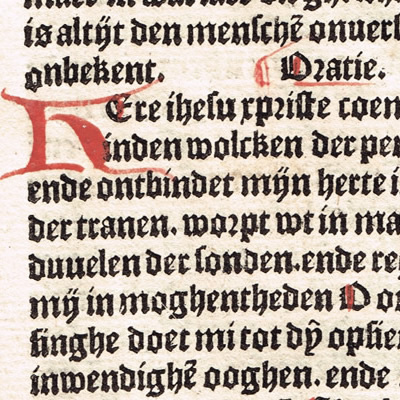 is altijt den menschē onuers
onbekent. Oratie.
HEre ihesu xpriste coem
inden wolcken der pe
ende ontbindet mijn herte i
der tranen. worpt wt in ma
duuelen der sonden. ende re
mij in moghentheden O
singhe doet mi tot dy̑ opsie
inwendighē ooghen. ende